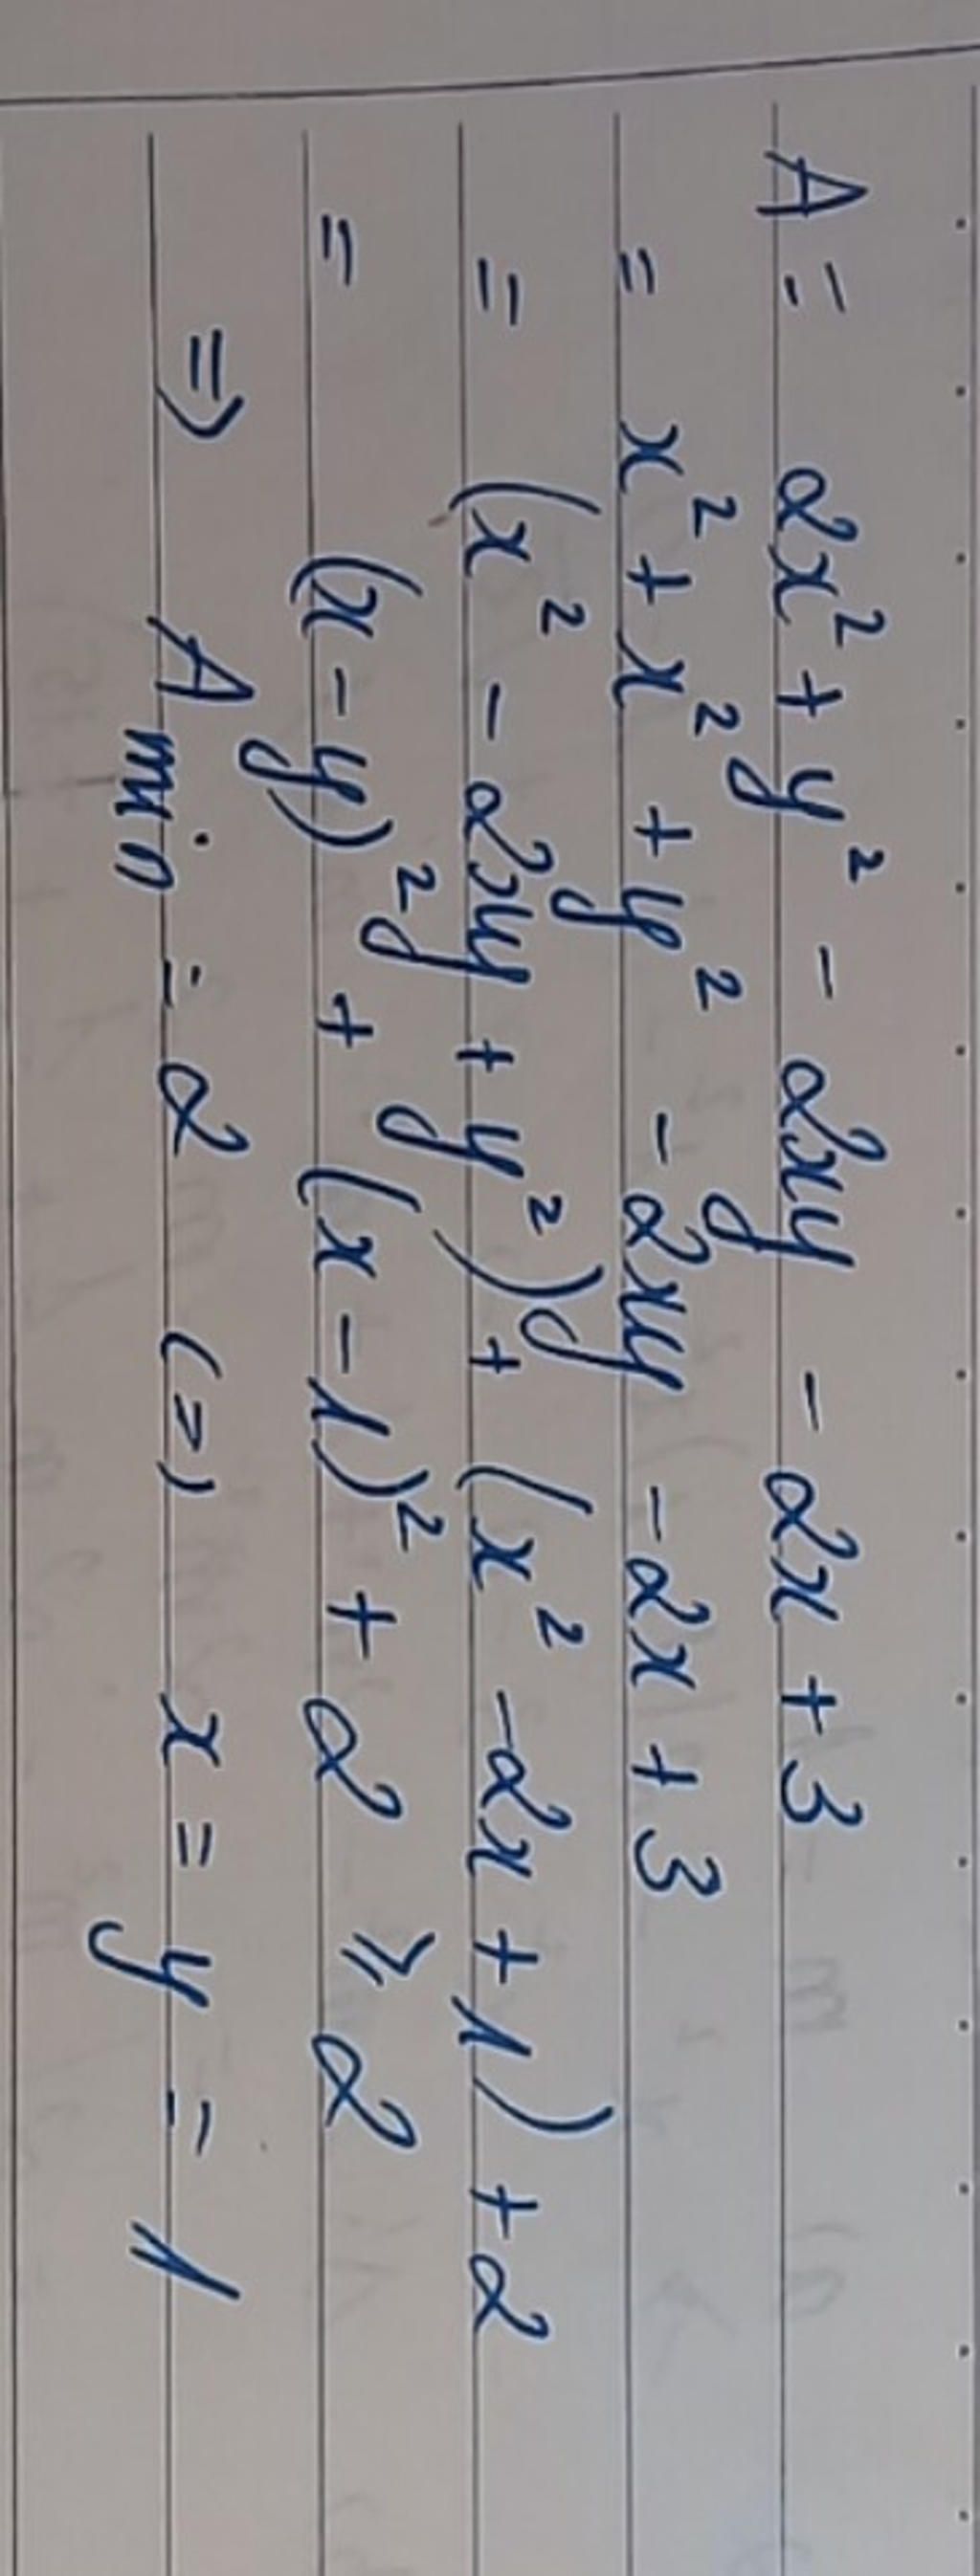 A = 2x² + y² - 2xy - 2x + 3
= x² + x² + y² - 2xy - 2x + 3
= (x² - 2xy + y²) + (x² - 2x + 1) + 2
= (x - y)² + (x - 1)² + 2 ⩾ 2
=> A min = 2 (=) x = y = 1